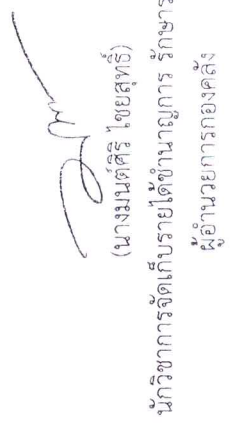 (นางมนต์ศิริ ไชยสุทธิ์)
นักวิชาการจัดเก็บรายได้ชำนาญการ รักษาร
ผู้อำนวยการกองคลัง